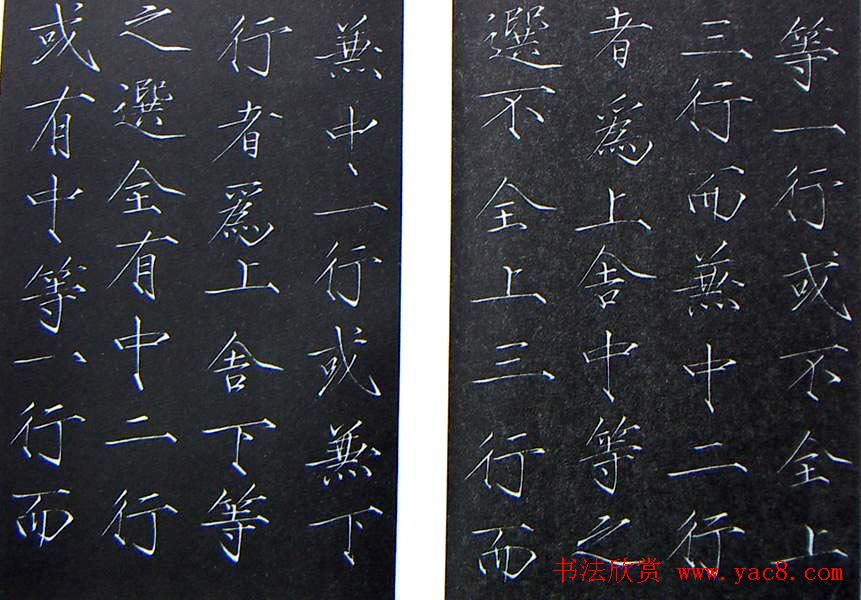 等一行或不全上
三行而兼中二行
者爲上舍中等之
選不全上三行而
兼中一行或兼下
行者爲上舍下等
之選全有中二行
或有中等一行而
书法欣赏 www.yac8.com